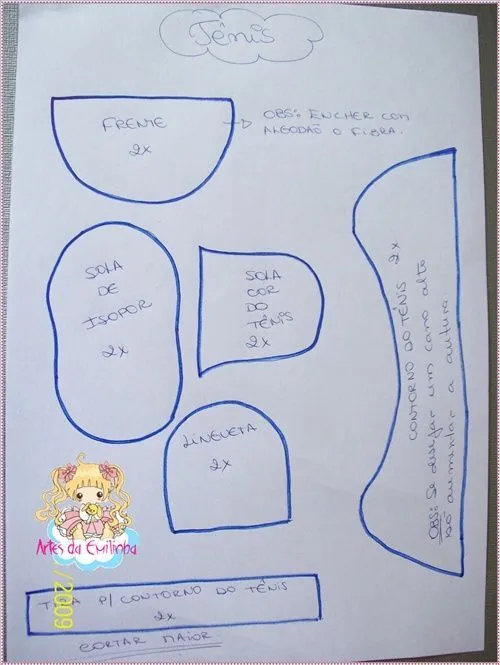 Tênis
FRENTE
2x
OBS: ENCHER COM
ALGODÃO O FIBRA.
SOLA
DE
ISOPOR
2x
SOLA
COR
DO
TÊNIS
2x
CONTORNO DO TÊNIS 2x
OBS: Se desejar um cano alto
só aumentar a autura
LINGUETA
2x
Artes da Emilinha
/2009
P/ CONTORNO DO TÊNIS
2x
CORTAR MAIOR